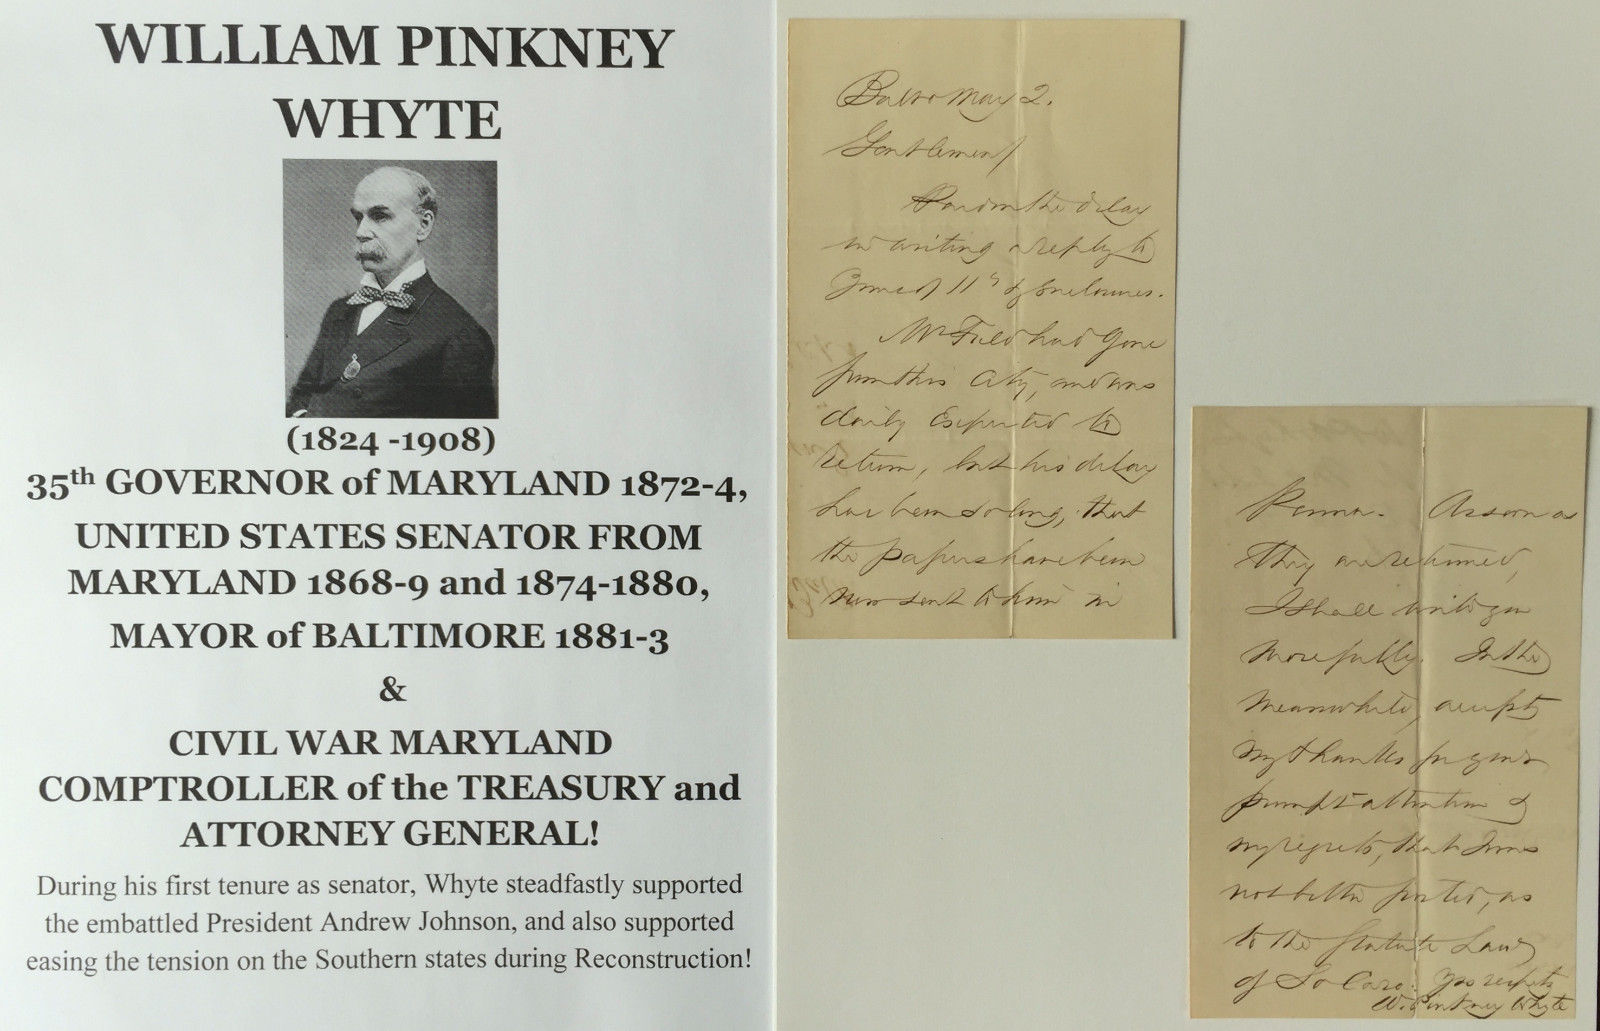 WILLIAM PINKNEY
WHYTE
(1824 -1908)
35th GOVERNOR of MARYLAND 1872-4,
UNITED STATES SENATOR FROM
MARYLAND 1868-9 and 1874-1880,
MAYOR of BALTIMORE 1881-3
&
CIVIL WAR MARYLAND
COMPTROLLER of the TREASURY and
ATTORNEY GENERAL!
During his first tenure as senator, Whyte steadfastly supported
the embattled President Andrew Johnson, and also supported
easing the tension on the Southern states during Reconstruction!
Balto May 2.
Gentlemen/
Pardon the delay
in writing a reply to
yours of 11th & enclosures.
Mr Field had gone
from this City, and was
daily Expected to
return, but his delay
has been so long, that
the papers have been
now sent to him in
Penna. As soon as
they are returned,
I shall write you
more fully. In the
meanwhile, accept
my thanks for your
prompt attention &
my regrets, that I was
not better posted, as
to the Statute Law
of So Caro. Yrs respcty
Wm Pinkney Whyte